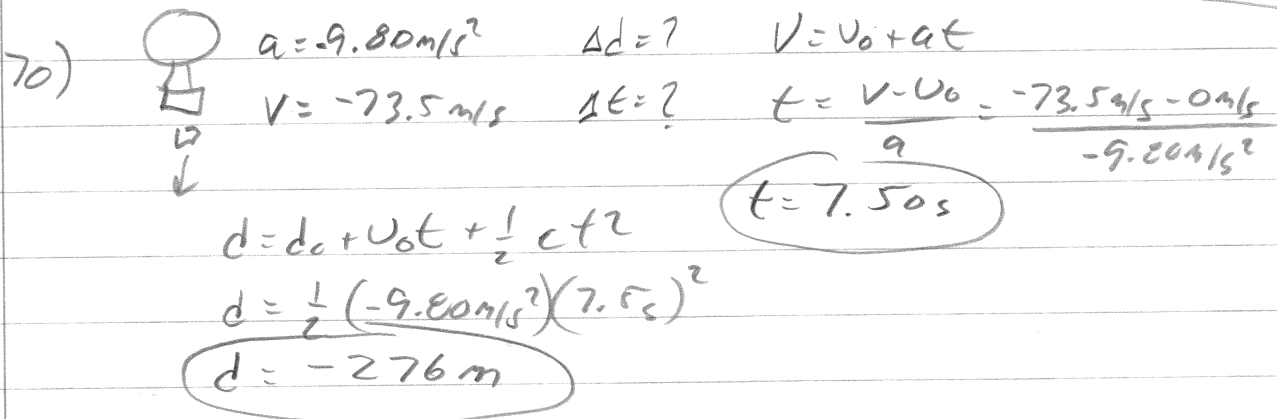 70) a = -9.80 m/s² Δd = ? V = V₀ + at
V = -73.5 m/s Δt = ? t = (V - V₀)/a = (-73.5 m/s - 0 m/s)/(-9.80 m/s²)
t = 7.50 s
d = d₀ + V₀t + ½ at²
d = ½ (-9.80 m/s²)(7.5 s)²
d = -276 m